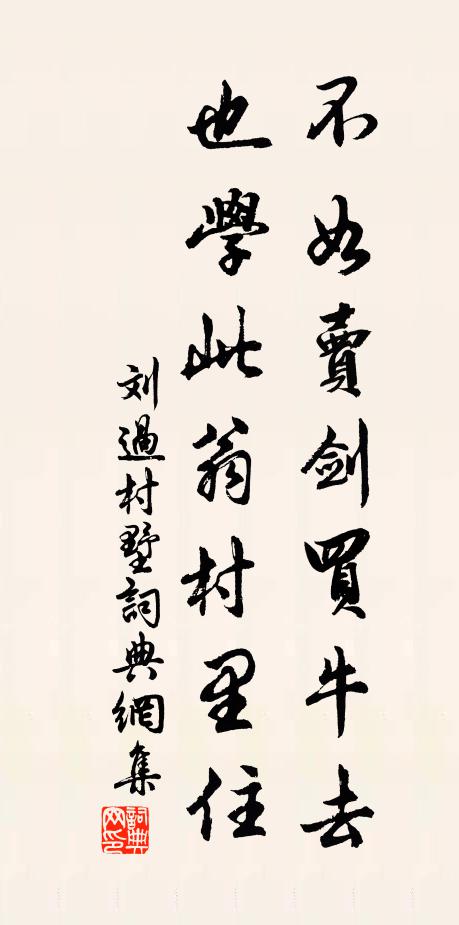 不如賣劍買牛去
也學此翁村里住
刘過村墅詞典網集
詞典網印